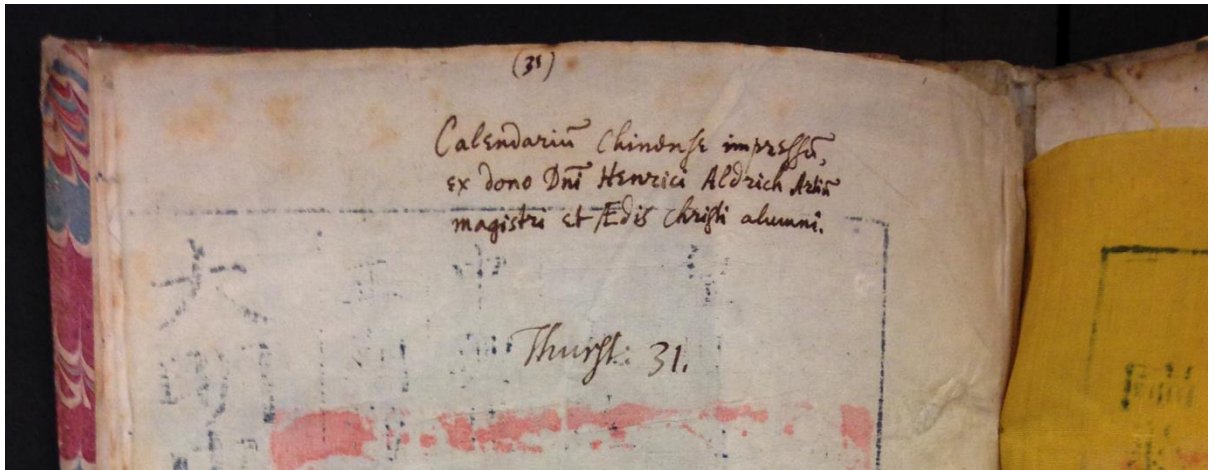 (31)
Calendariū Chinense impressū,
ex dono Dn̄i Henrici Aldrich Artiū
magistri et Ædis Christi alumni.
Thurst. 31.